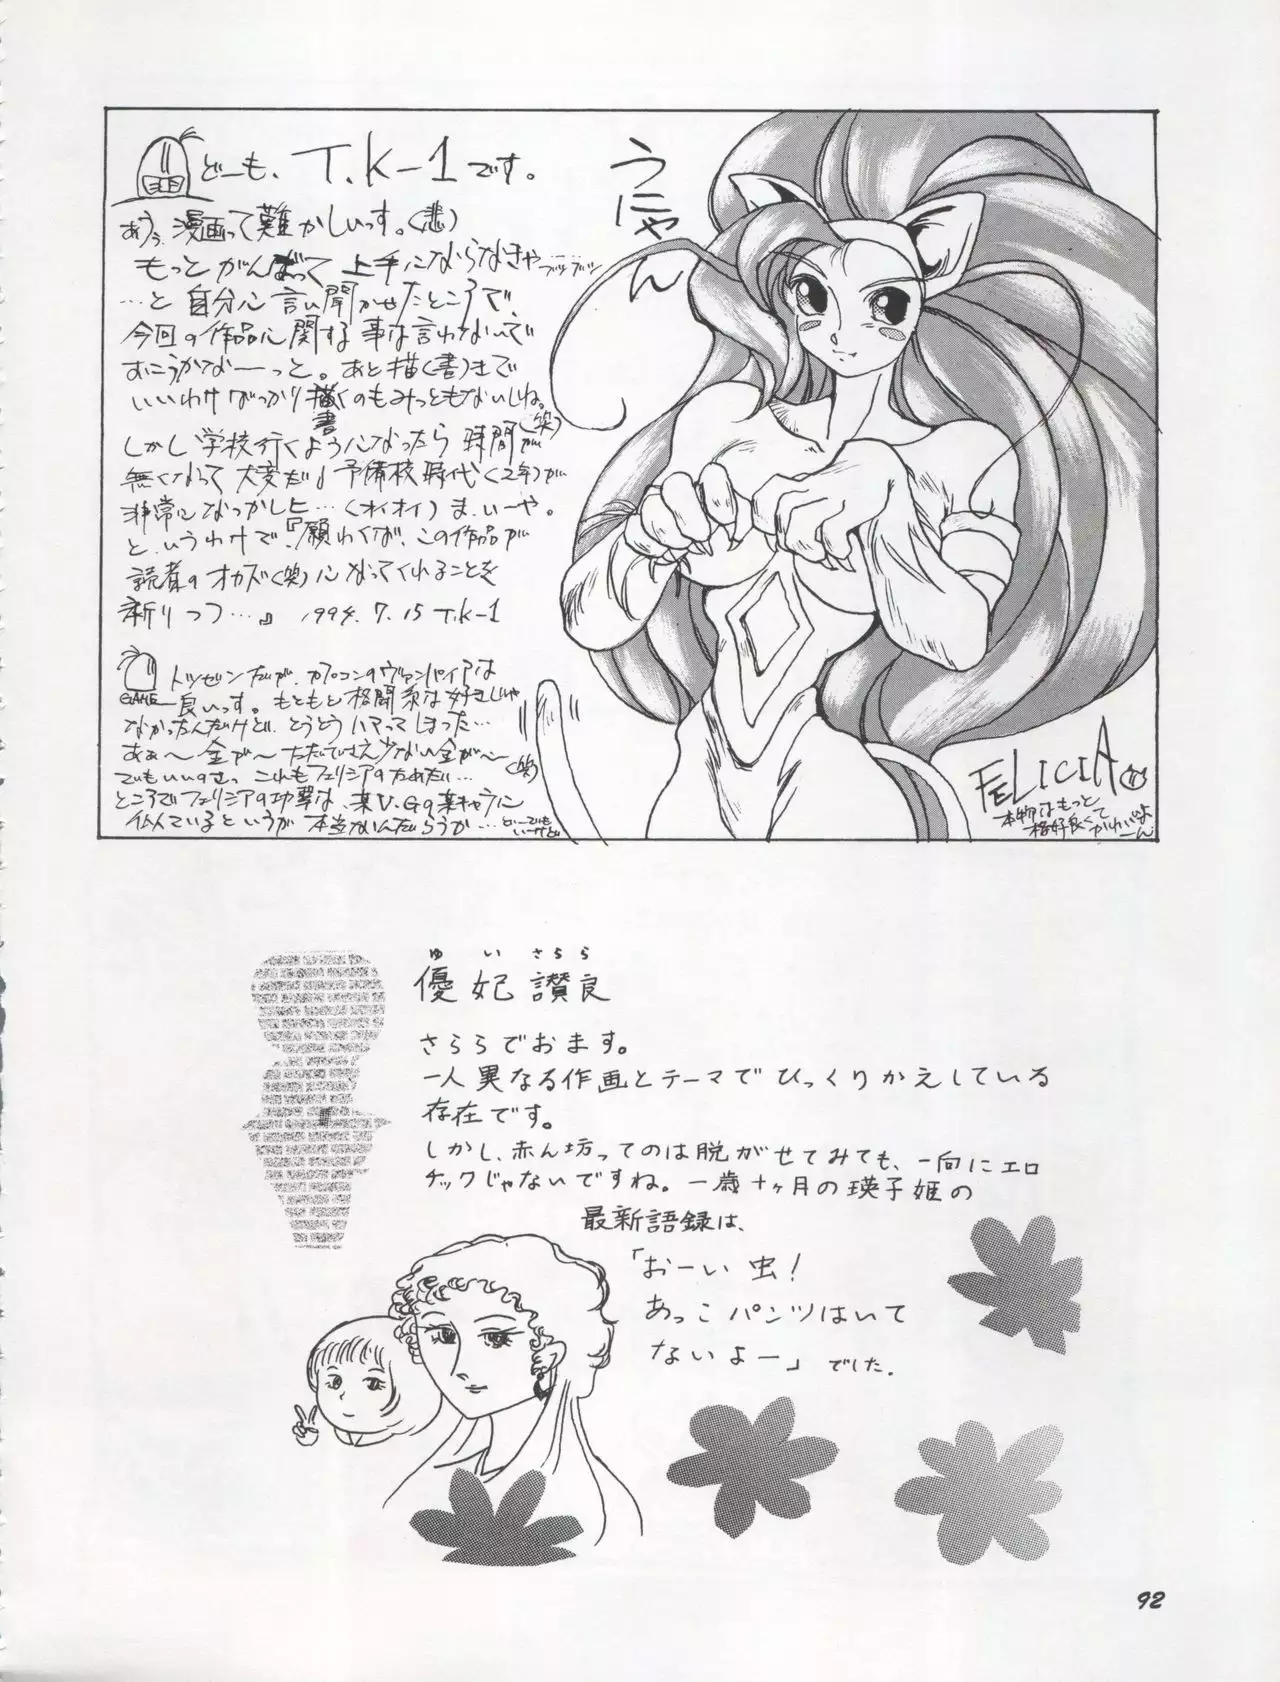 どーも、T.K-1です。
あうぅ、漫画って難かしいっす。(悲)
もっとがんばって上手にならなきゃ ブツブツ…
…と自分に言い聞かせたところで、
今回の作品に関する事は言わないで
おこうかなーっと。あと描(書)きで
いいわけばっかり描くのもみっともないしね。
書
(笑)
しかし学校行くようになったら時間が
無くなって大変だ♪予備校時代(2年)が
非常になつかしヒ…(オイオイ)ま、いーや。
と、いうわけで、『願わくば、この作品が
読者のオカズ(笑)になってくれることを
祈りつつ…』 1994.7.15 T.K-1
GAME
トツゼンだが、カプコンのヴァンパイアは
良いっす。もともと格闘系は好きじゃ
なかったんだけど、とうとうハマってしまった…
あぁ〜金が〜ただでさえ少ない金が〜
(笑)
でもいいのさっ これもフェリシアのためだい…
ところでフェリシアの功撃は、某V.Gの某キャラに
似ているというが 本当なんだろうか… どーでも
いーけど
うにゃん
FELICIA
本物はもっと
格好良くて
かわいいよ
ーん
ゆ い さ ら ら
優妃讃良
さららでおます。
一人異なる作画とテーマでひっくりかえしている
存在です。
しかし、赤ん坊ってのは脱がせてみても、一向にエロ
チックじゃないですね。一歳十ヶ月の瑛子姫の
最新語録は、
「おーい虫!
あっこパンツはいて
ないよー」でした。
92